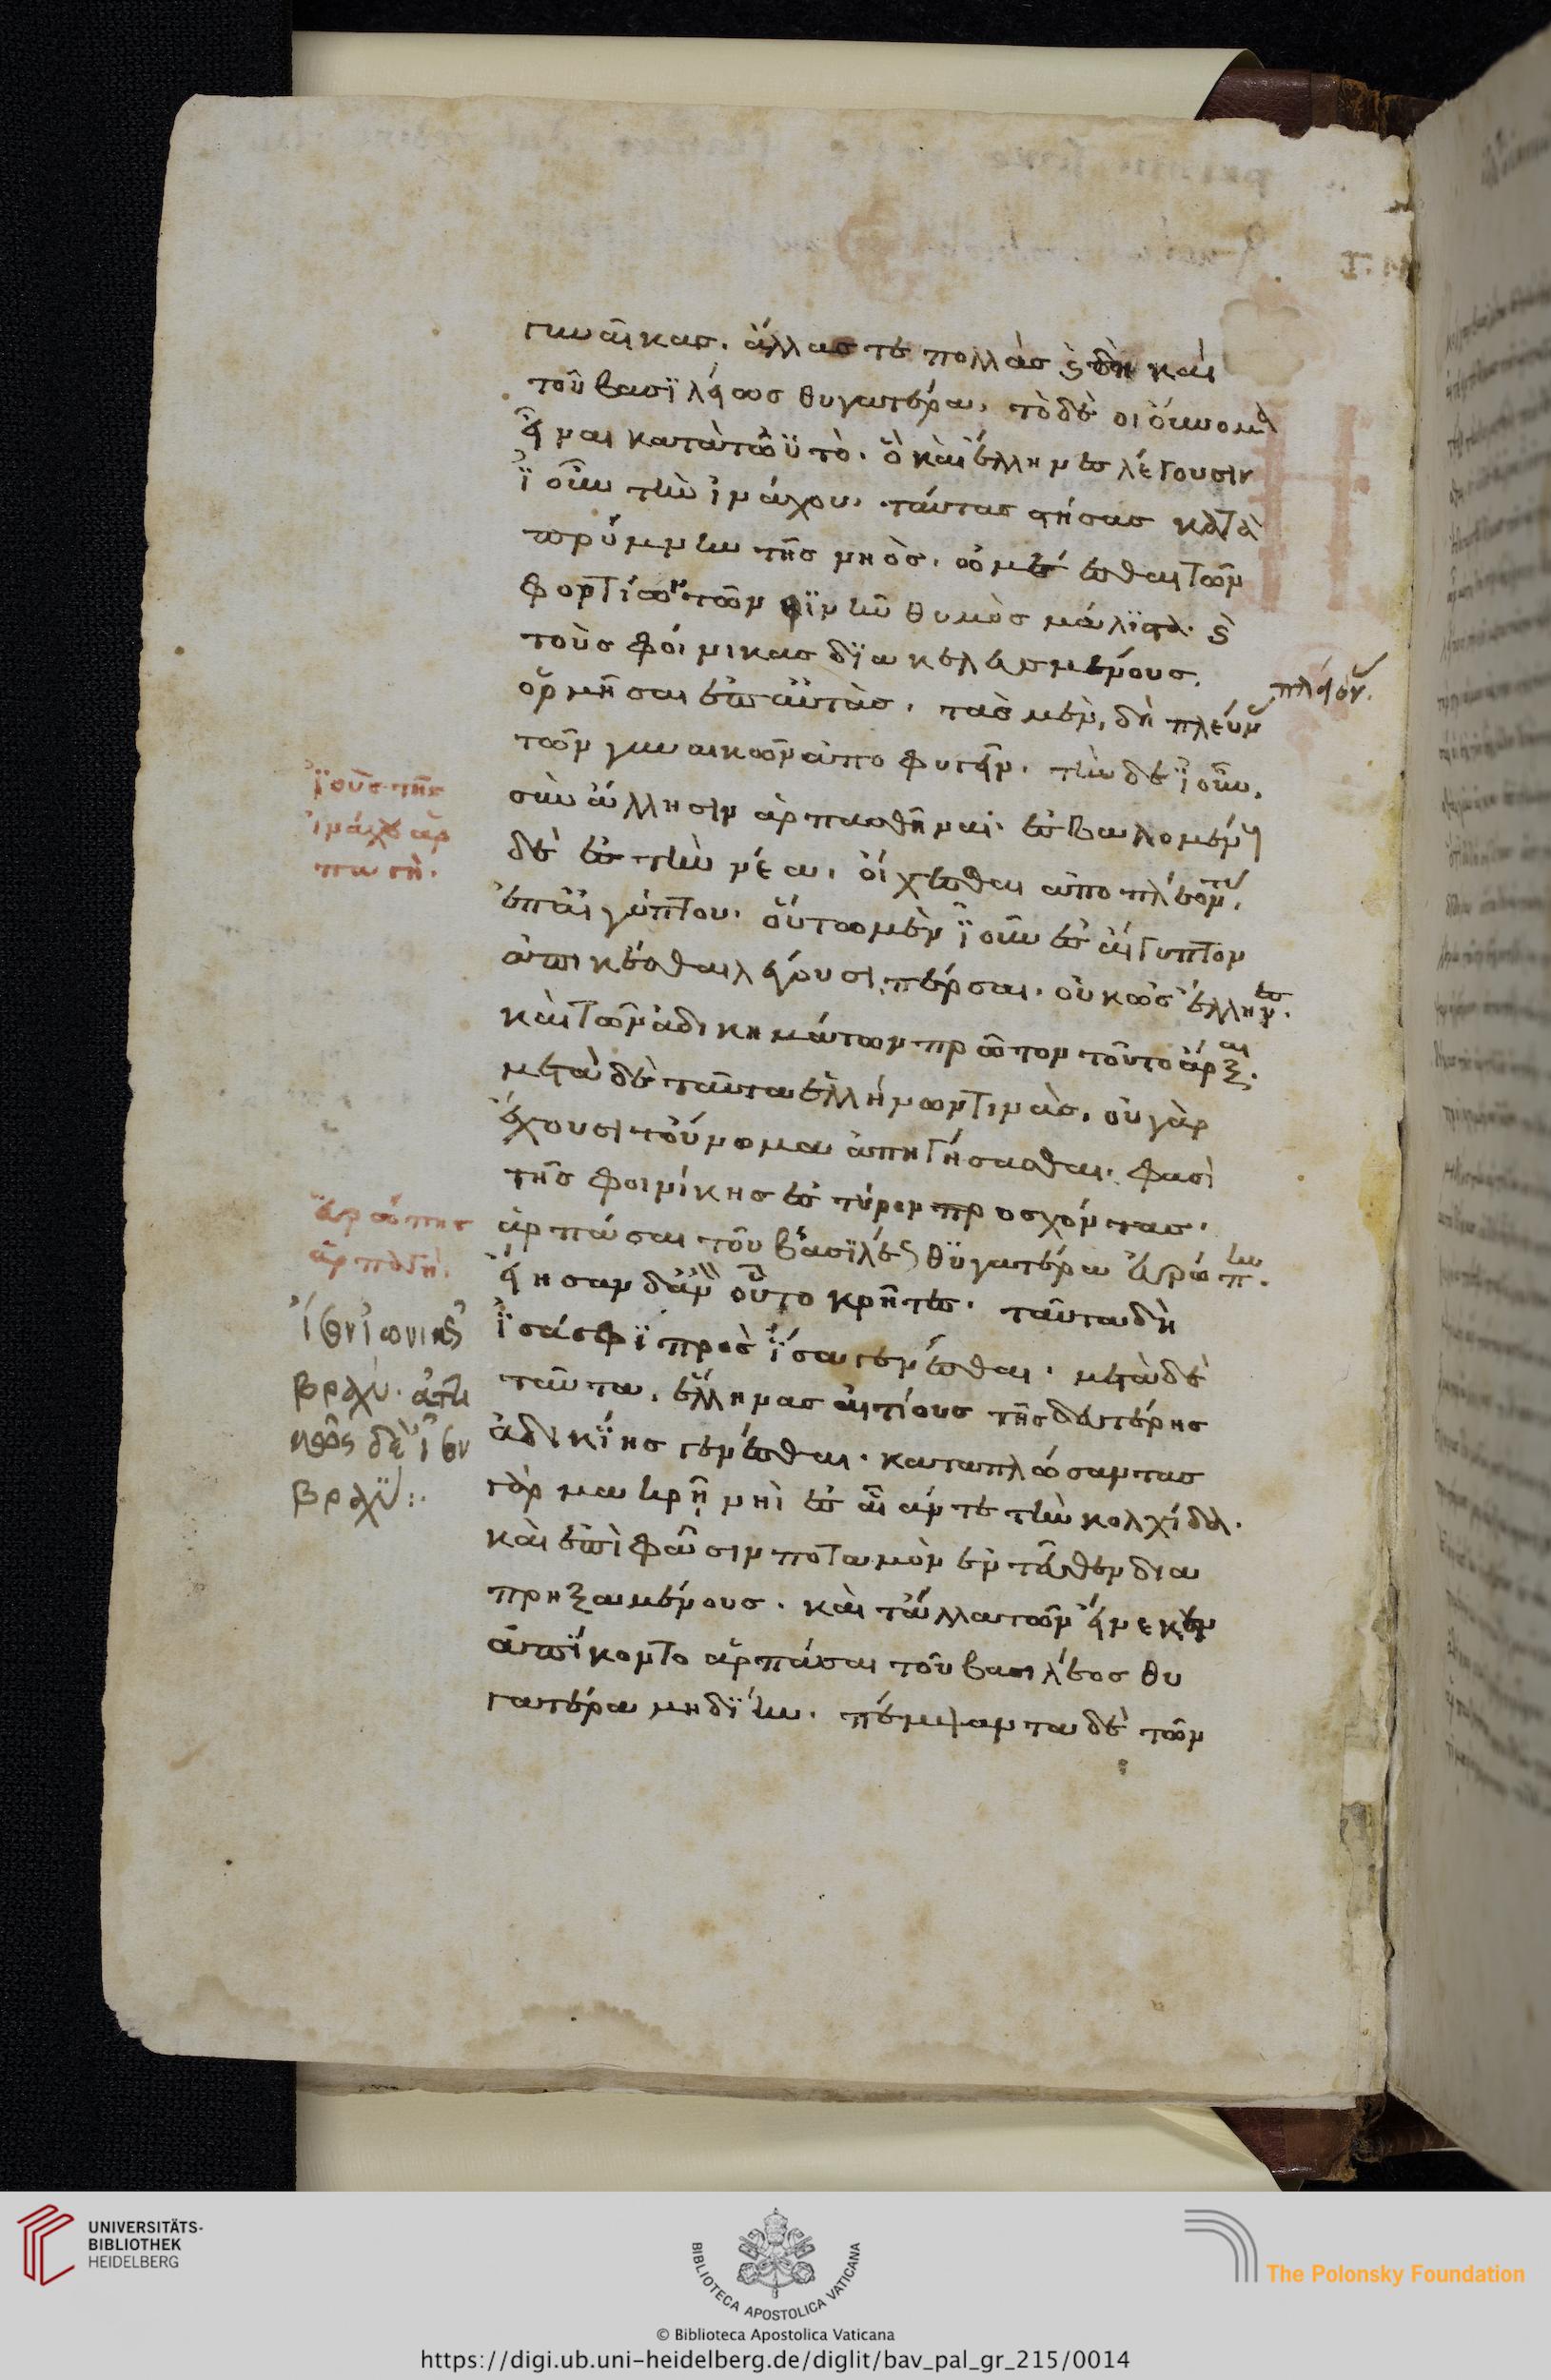 γυναῖκας. ἄλλας τε πολλὰς ϗ δὴ καὶ
τοῦ βασϊλῆος θυγατέρα. τὸ δέ οἱ ὄυνομα
εἶναι κατὰ τὠϋτὸ. ὃ καὶ ἕλληνες λέγουσιν
ϊοῦν τὴν ἰνάχου. ταύτας στήσας κατὰ
πρύμνην τῆς νηὸς. ὠνέεσθαι τῶν
φορτίων τῶν σφϊ ἦν θυμὸς μάλϊστα. ϗ
τοὺς φοίνικας δϊακελευσαμένους.
ὁρμῆσαι ἐπ' αὐτὰς. τὰς μὲν δὴ πλεῦν
τῶν γυναικῶν ἀποφυγεῖν. τὴν δὲ ϊοῦν.
σὺν ἄλλησιν ἁρπασθῆναι. ἐσβαλομέν
δὲ ἐς τὴν νέα. οἴχεσθαι ἀποπλέοντ
ἐπ' αἰγύπτου. οὕτω μὲν ϊοῦν ἐς αἴγυπτον
ἀπικέσθαι λέγουσι πέρσαι. οὐκ ὡς ἕλληνες.
καὶ τῶν ἀδικημάτων πρῶτον τοῦτο ἄρξαι.
μετὰ δὲ ταῦτα ἑλλήνων τινὰς. οὐ γὰρ
ἔχουσι τοὔνομα ἀπηγήσασθαι. φασὶ
τῆς φοινίκης ἐς τύρον προσχόντας.
ἁρπάσαι τοῦ βασϊλέος θϋγατέρα εὐρώπην.
εἴησαν δ' ἂν οὗτοι κρῆτες. ταῦτα δὴ
ϊσά σφϊ πρὸς ϊσα γενέσθαι. μετὰ δὲ
ταῦτα. ἕλληνας αἰτίους τῆς δευτέρης
ἀδικϊης γενέσθαι. καταπλώσαντας
γὰρ μακρῆ νηὶ ἐς αἶάν τε τὴν κολχίδα.
καὶ ἐπὶ φᾶσιν ποταμὸν ἐνθεῦτεν δια
πρηξαμένους. καὶ τἄλλα τῶν εἵνεκεν
ἀπίκοντο ἁρπάσαι τοῦ βασιλέος θυ
γατέρα μηδϊην. πέμψαντα δὲ τὸν
πλεῦν.
ϊοῦς τῆς
ἰνάχου ἁρ
παγή.
Εὐρώπης
ἁρπαγή.
βραχύ.
βραχύ:.
UNIVERSITÄTS-
BIBLIOTHEK
HEIDELBERG
BIBLIOTECA APOSTOLICA VATICANA
The Polonsky Foundation
© Biblioteca Apostolica Vaticana
https://digi.ub.uni-heidelberg.de/diglit/bav_pal_gr_215/0014